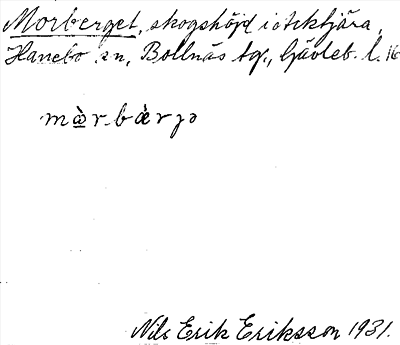 Morberget, skogshöjd i Öjektjära,
Hanebo sn, Bollnäs tg., Gävleb. l. 16
mæ̀r-bær̀jə
Nils Erik Eriksson 1931.